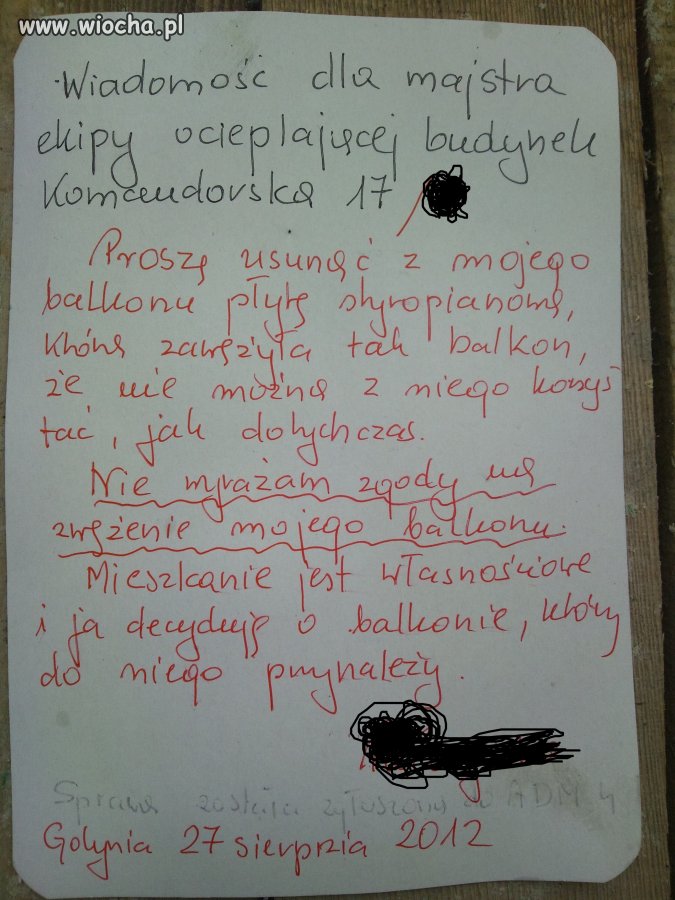 www.wiocha.pl
Wiadomość dla majstra
ekipy ocieplającej budynek
Komandorska 17
Proszę usunąć z mojego
balkonu płytę styropianową,
która zawężyła tak balkon,
że nie można z niego korzys
tać, jak dotychczas.
Nie wyrażam zgody na
zwężenie mojego balkonu.
Mieszkanie jest własnościowe
i ja decyduję o balkonie, który
do niego przynależy.
Sprawa została zgłoszona do ADM 4
Gdynia 27 sierpnia 2012